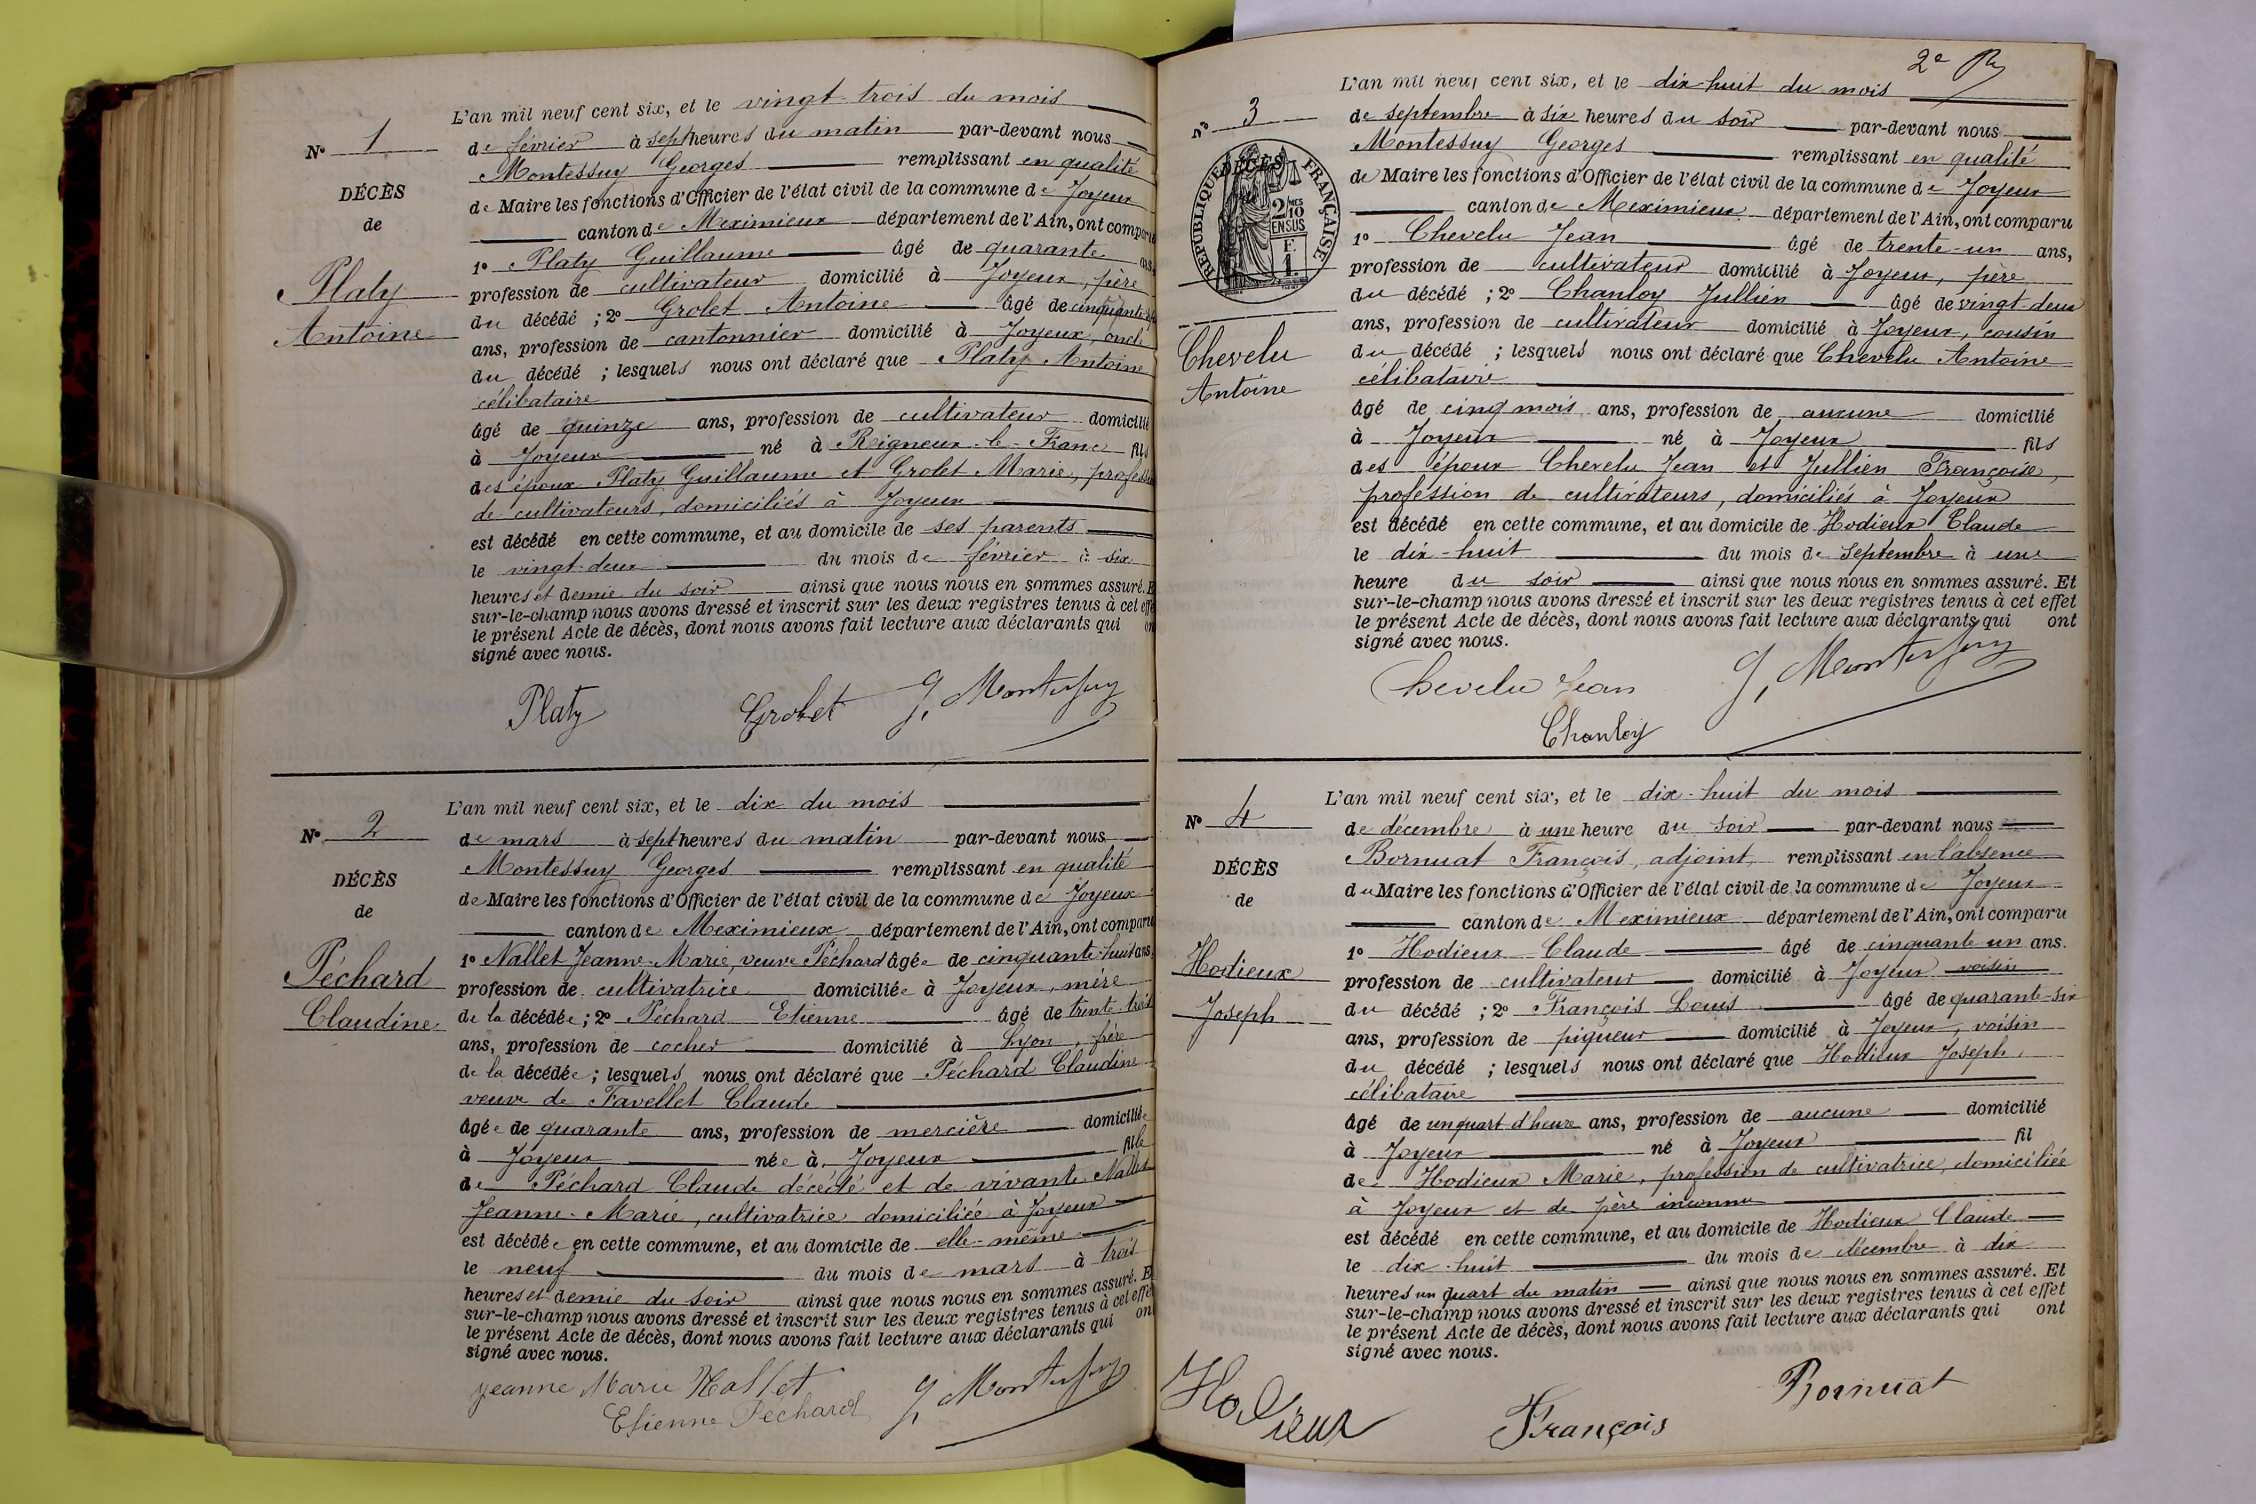 L'an mil neuf cent six, et le vingt-trois du mois
N° 1
de février à sept heures du matin par-devant nous
Montessuy Georges remplissant en qualité
DÉCÈS
de Maire les fonctions d'Officier de l'état civil de la commune de Joyeux
de
canton de Meximieux département de l'Ain, ont comparu
1° Platy Guillaume âgé de quarante ans,
Platy
profession de cultivateur domicilié à Joyeux, père
du décédé ; 2° Grolet Antoine âgé de cinquante
Antoine
ans, profession de cantonnier domicilié à Joyeux, oncle
du décédé ; lesquels nous ont déclaré que Platy Antoine
célibataire
âgé de quinze ans, profession de cultivateur domicilié
à Joyeux né à Rigneux-le-Franc fils
des époux Platy Guillaume et Grolet Marie, profession
de cultivateurs, domiciliés à Joyeux
est décédé en cette commune, et au domicile de ses parents
le vingt-deux du mois de février à six
heures et demie du soir ainsi que nous nous en sommes assuré. Et
sur-le-champ nous avons dressé et inscrit sur les deux registres tenus à cet effet
le présent Acte de décès, dont nous avons fait lecture aux déclarants qui ont
signé avec nous.
Platy Grolet G. Montessuy
L'an mil neuf cent six, et le dix du mois
N° 2
de mars à sept heures du matin par-devant nous
Montessuy Georges remplissant en qualité
DÉCÈS
de Maire les fonctions d'Officier de l'état civil de la commune de Joyeux
de
canton de Meximieux département de l'Ain, ont comparu
1° Nallet Jeanne-Marie, veuve Péchard âgée de cinquante-huit ans,
Péchard
profession de cultivatrice domiciliée à Joyeux, mère
de la décédée ; 2° Péchard Etienne âgé de trente-trois
Claudine
ans, profession de cocher domicilié à Lyon, frère
de la décédée ; lesquels nous ont déclaré que Péchard Claudine
veuve de Favellet Claude
âgée de quarante ans, profession de mercière domiciliée
à Joyeux née à Joyeux fille
de Péchard Claude décédé et de vivante Nallet
Jeanne-Marie, cultivatrice domiciliée à Joyeux
est décédée en cette commune, et au domicile de elle-même
le neuf du mois de mars à trois
heures et demie du soir ainsi que nous nous en sommes assuré. Et
sur-le-champ nous avons dressé et inscrit sur les deux registres tenus à cet effet
le présent Acte de décès, dont nous avons fait lecture aux déclarants qui ont
signé avec nous.
Jeanne Marie Nallet
Etienne Péchard G. Montessuy
2e
L'an mil neuf cent six, et le dix-huit du mois
N° 3
de septembre à six heures du soir par-devant nous
Montessuy Georges remplissant en qualité
DÉCÈS
RÉPUBLIQUE FRANÇAISE
2/10 MES
EN SUS
F.
1.
de Maire les fonctions d'Officier de l'état civil de la commune de Joyeux
canton de Meximieux département de l'Ain, ont comparu
1° Chevelu Jean âgé de trente-un ans,
profession de cultivateur domicilié à Joyeux, père
du décédé ; 2° Chanloy Jullien âgé de vingt-deux
ans, profession de cultivateur domicilié à Joyeux, cousin
Chevelu
du décédé ; lesquels nous ont déclaré que Chevelu Antoine
Antoine
célibataire
âgé de cinq mois ans, profession de aucune domicilié
à Joyeux né à Joyeux fils
des époux Chevelu Jean et Jullien Françoise,
profession de cultivateurs, domiciliés à Joyeux
est décédé en cette commune, et au domicile de Hodieux Claude
le dix-huit du mois de septembre à une
heure du soir ainsi que nous nous en sommes assuré. Et
sur-le-champ nous avons dressé et inscrit sur les deux registres tenus à cet effet
le présent Acte de décès, dont nous avons fait lecture aux déclarants qui ont
signé avec nous.
Chevelu Jean G. Montessuy
Chanloy
L'an mil neuf cent six, et le dix-huit du mois
N° 4
de décembre à une heure du soir par-devant nous
Bornuat François, adjoint, remplissant en l'absence
DÉCÈS
du Maire les fonctions d'Officier de l'état civil de la commune de Joyeux
de
canton de Meximieux département de l'Ain, ont comparu
1° Hodieux Claude âgé de cinquante-un ans.
Hodieux
profession de cultivateur domicilié à Joyeux voisin
du décédé ; 2° François Louis âgé de quarante-six
Joseph
ans, profession de piqueur domicilié à Joyeux, voisin
du décédé ; lesquels nous ont déclaré que Hodieux Joseph,
célibataire
âgé de un quart d'heure ans, profession de aucune domicilié
à Joyeux né à Joyeux fil
de Hodieux Marie, profession de cultivatrice, domiciliée
à Joyeux et de père inconnu
est décédé en cette commune, et au domicile de Hodieux Claude
le dix-huit du mois de décembre à dix
heures un quart du matin ainsi que nous nous en sommes assuré. Et
sur-le-champ nous avons dressé et inscrit sur les deux registres tenus à cet effet
le présent Acte de décès, dont nous avons fait lecture aux déclarants qui ont
signé avec nous.
Hodieux François Bornuat